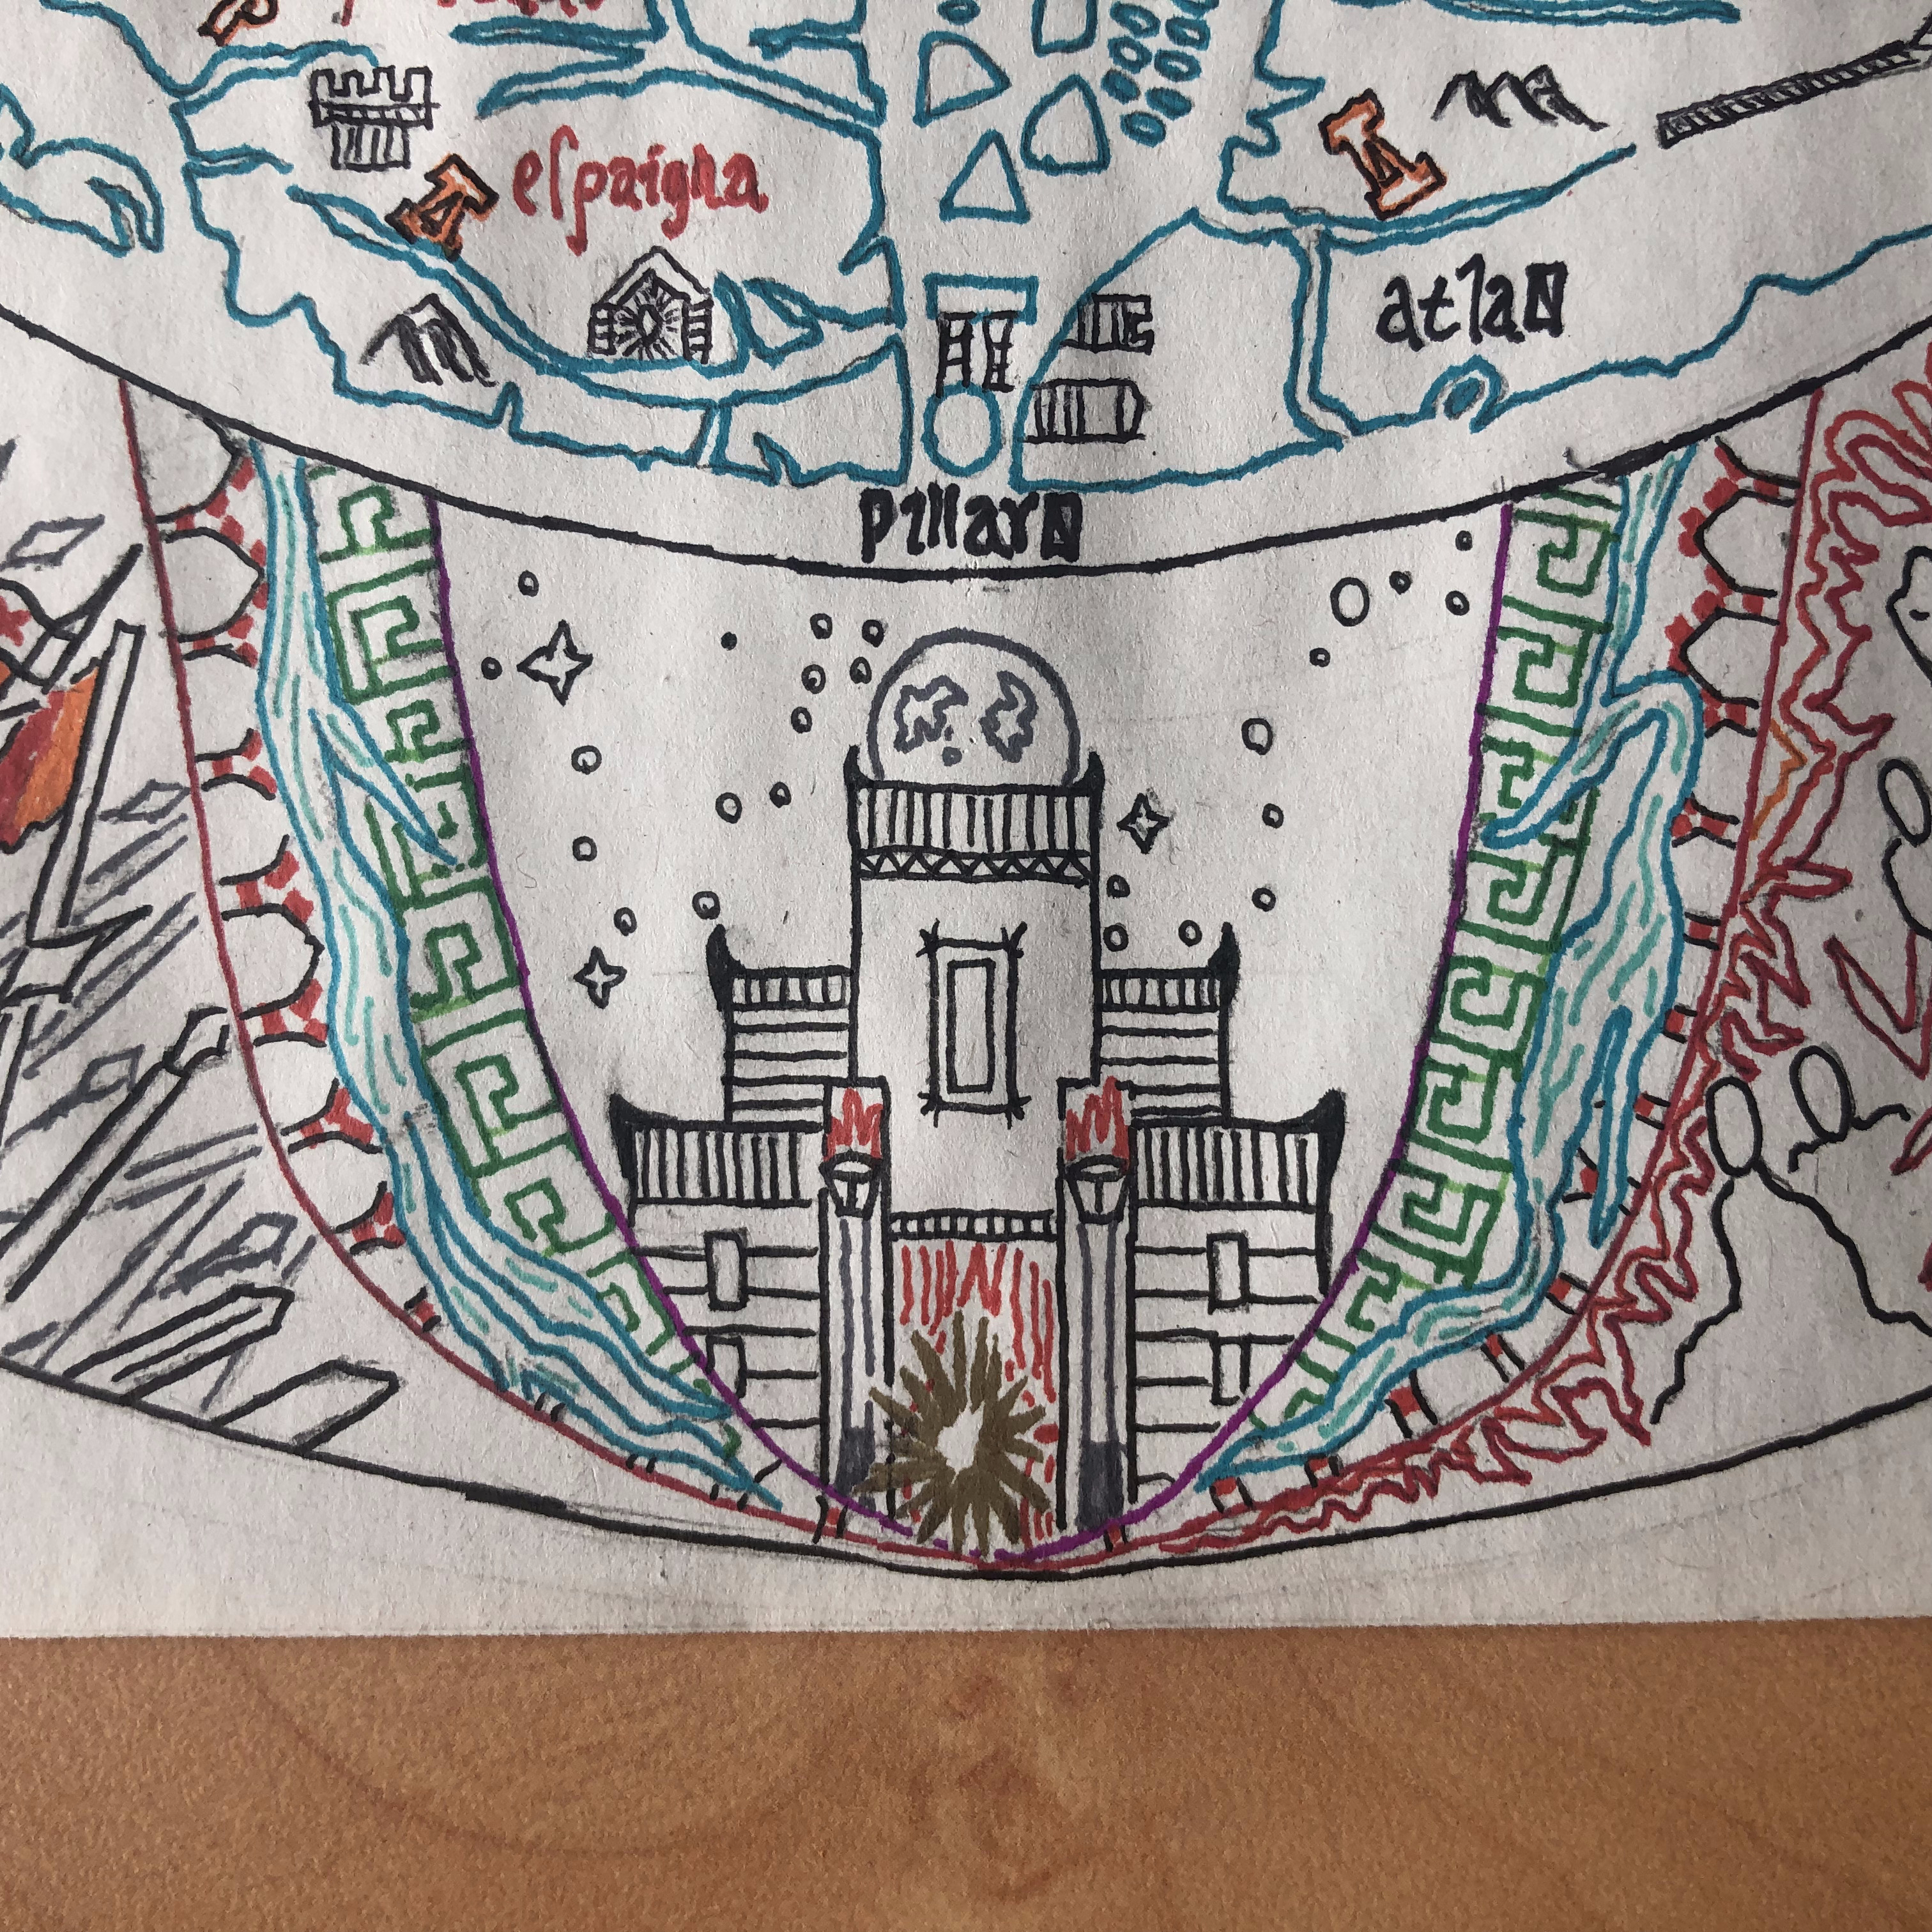 eſpaigna
atlaN
pillarN